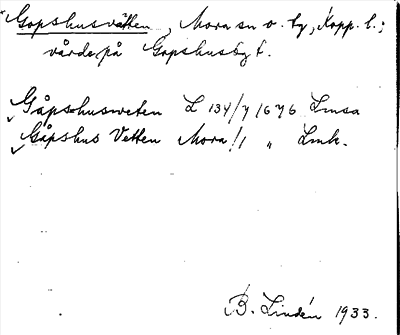 Gopshusvätten, Mora sn o. tg, Kopp. l.;
vårde på Gopshusby f.
Gåpshusweten L 134/7 1676 Lmsa
Gåpshus Vetten Mora 1/1 " Lmk.
B. Lindén 1933.